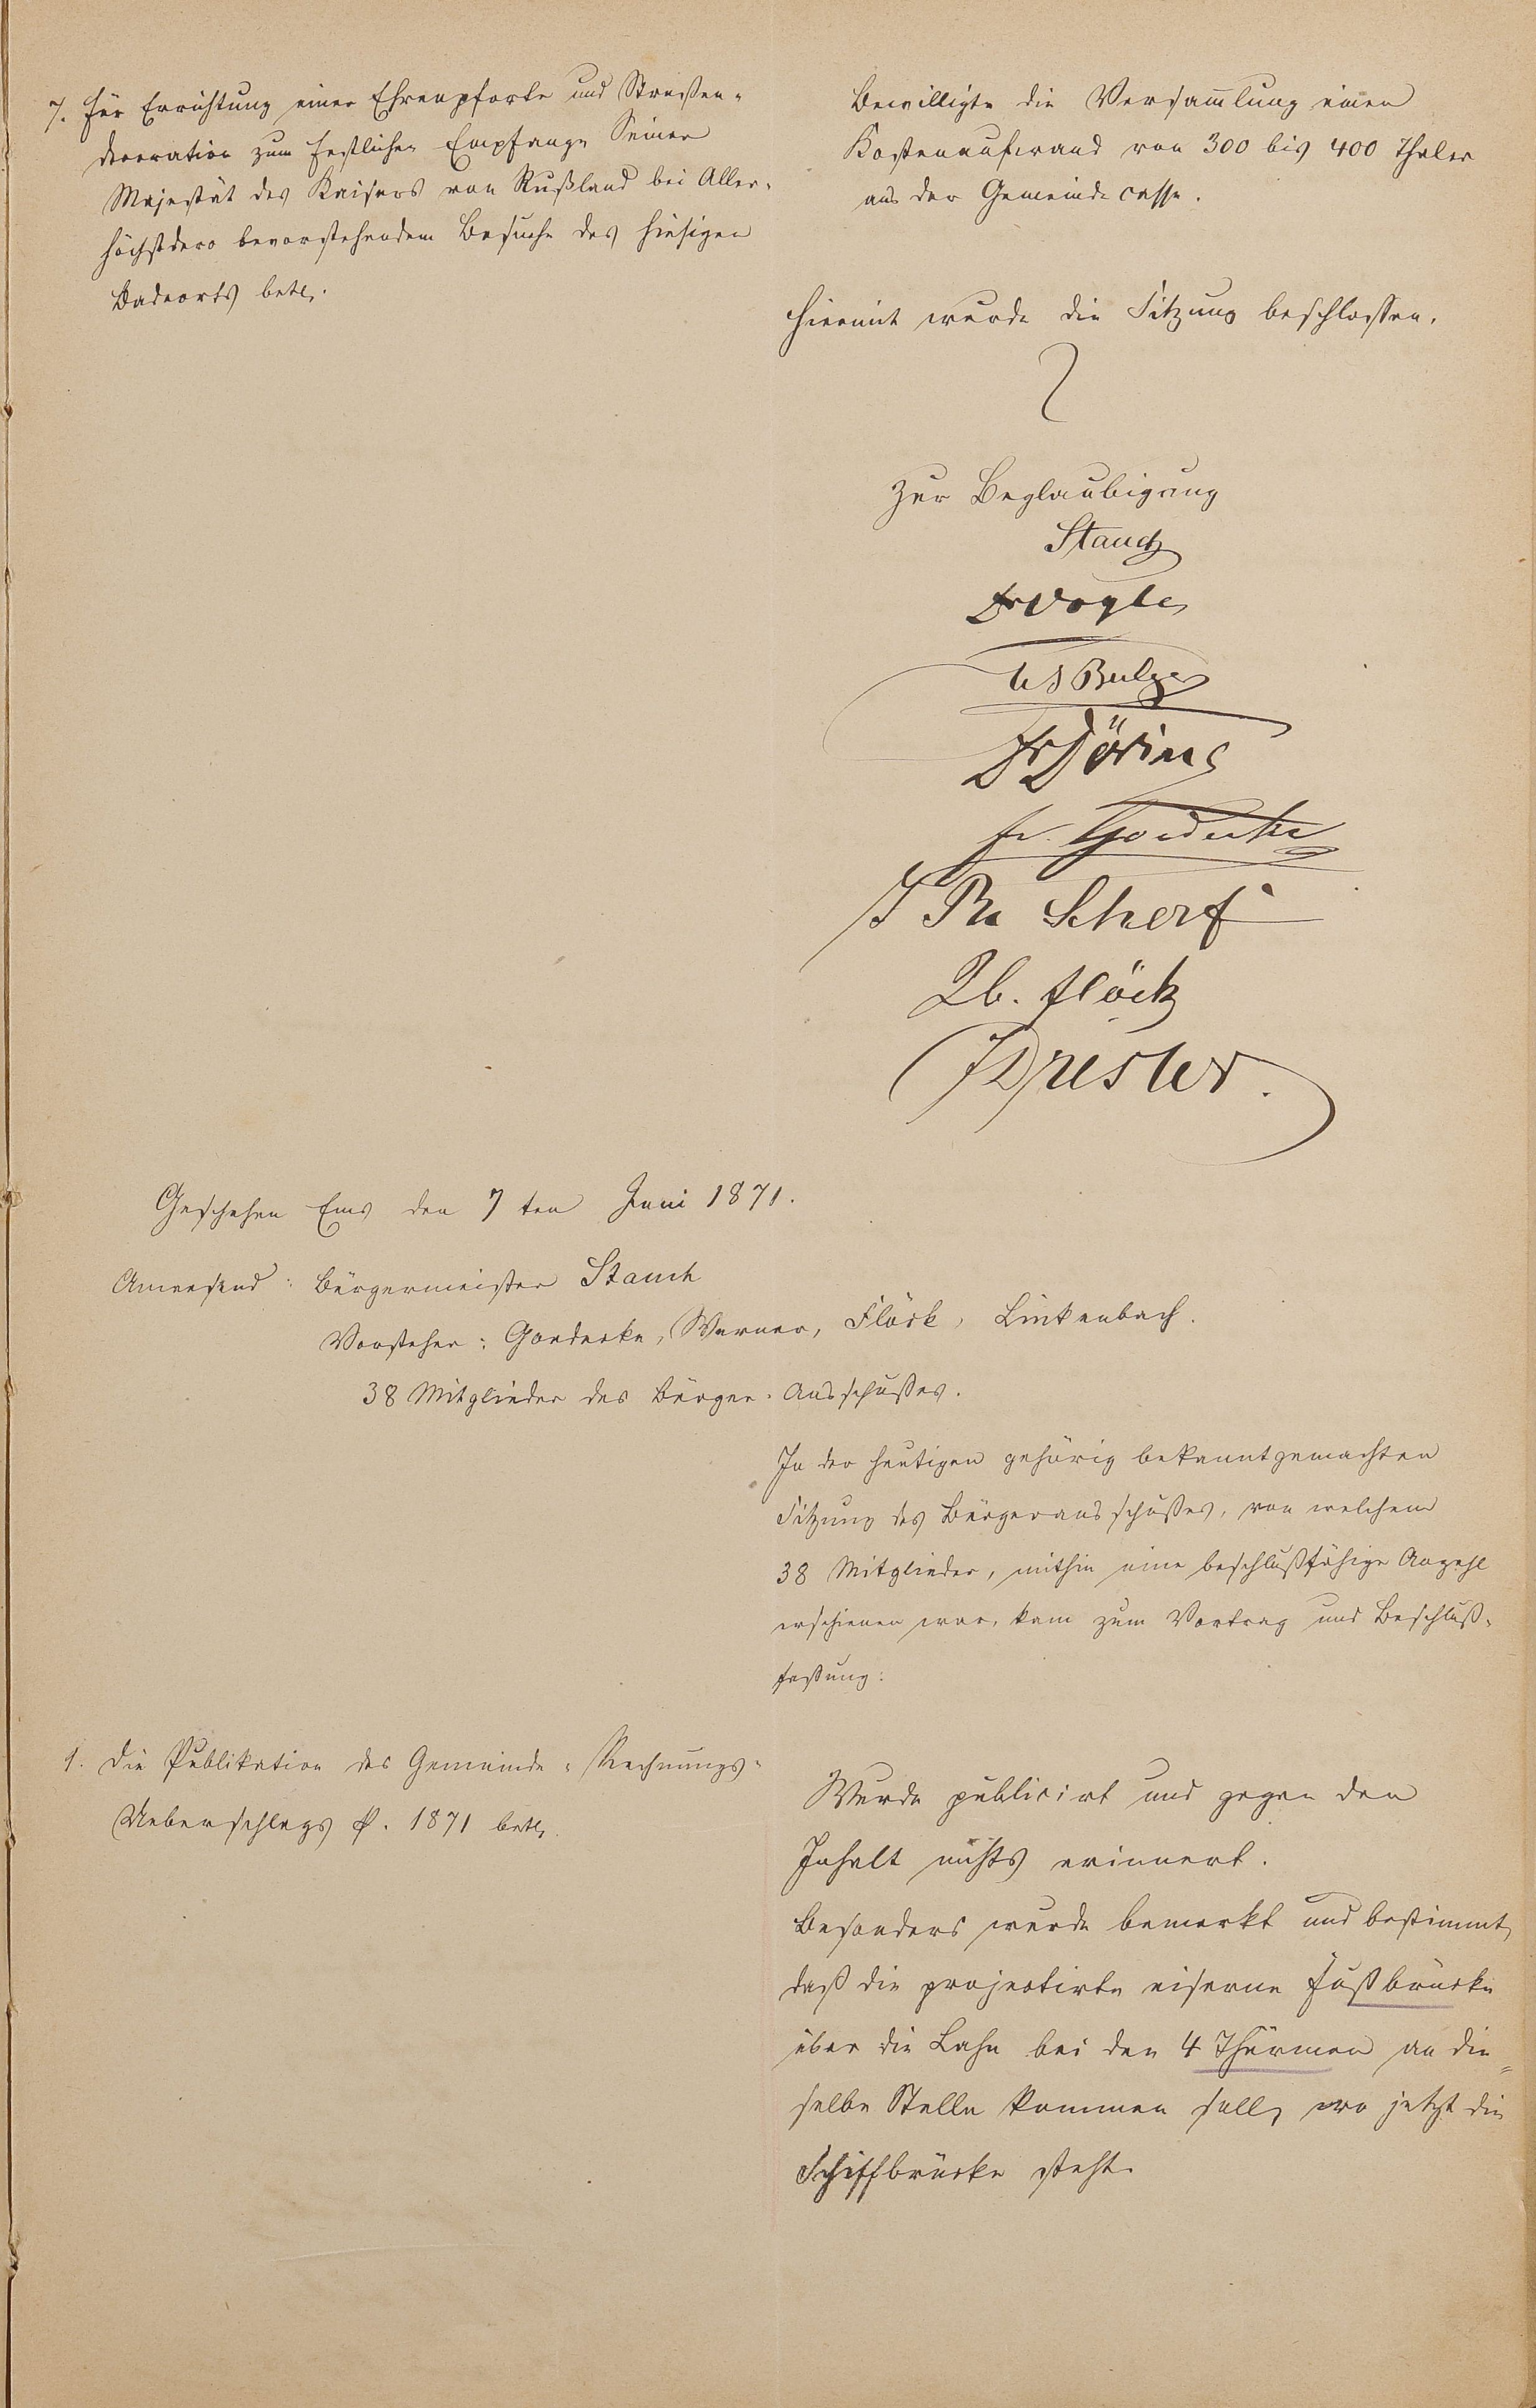 7. Für Errichtung einer Ehrenpforte und Straßen-
decoration zum festlichen Empfange Seiner
Majestät des Kaisers von Rußland bei Aller-
höchstdero bevorstehendem Besuche des hiesigen
Badeorts betr.
Bewilligte die Versammlung einen
Kostenaufwand von 300 bis 400 Thaler
aus der Gemeindecasse.
Hiermit wurde die Sitzung beschlossen.
Zur Beglaubigung
Stauch
Dr Vogler
Dr Döring
Fr. Goedecke
J Ph Scherf
Flöck
Geschehen Ems den 7ten Juni 1871.
Anwesend: Bürgermeister Stauch
Vorsteher: Goedecke, Werner, Flöck, Linkenbach.
38 Mitglieder des Bürger-Ausschußes.
In der heutigen gehörig bekanntgemachten
Sitzung des Bürgerausschußes, von welchem
38 Mitglieder, mithin eine beschlußfähige Anzahl
erschienen war, kam zum Vortrag und Beschluß-
faßung:
1. Die Publikation des Gemeinde-Rechnungs-
Ueberschlags p. 1871 betr.
Wurde publicirt und gegen den
Inhalt nichts erinnert.
Besonders wurde bemerkt und bestimmt,
daß die projectirte eiserne Fußbrücke
über die Lahn bei den 4 Thürmen an die-
selbe Stelle kommen soll, wo jetzt die
Schiffbrücke steht.